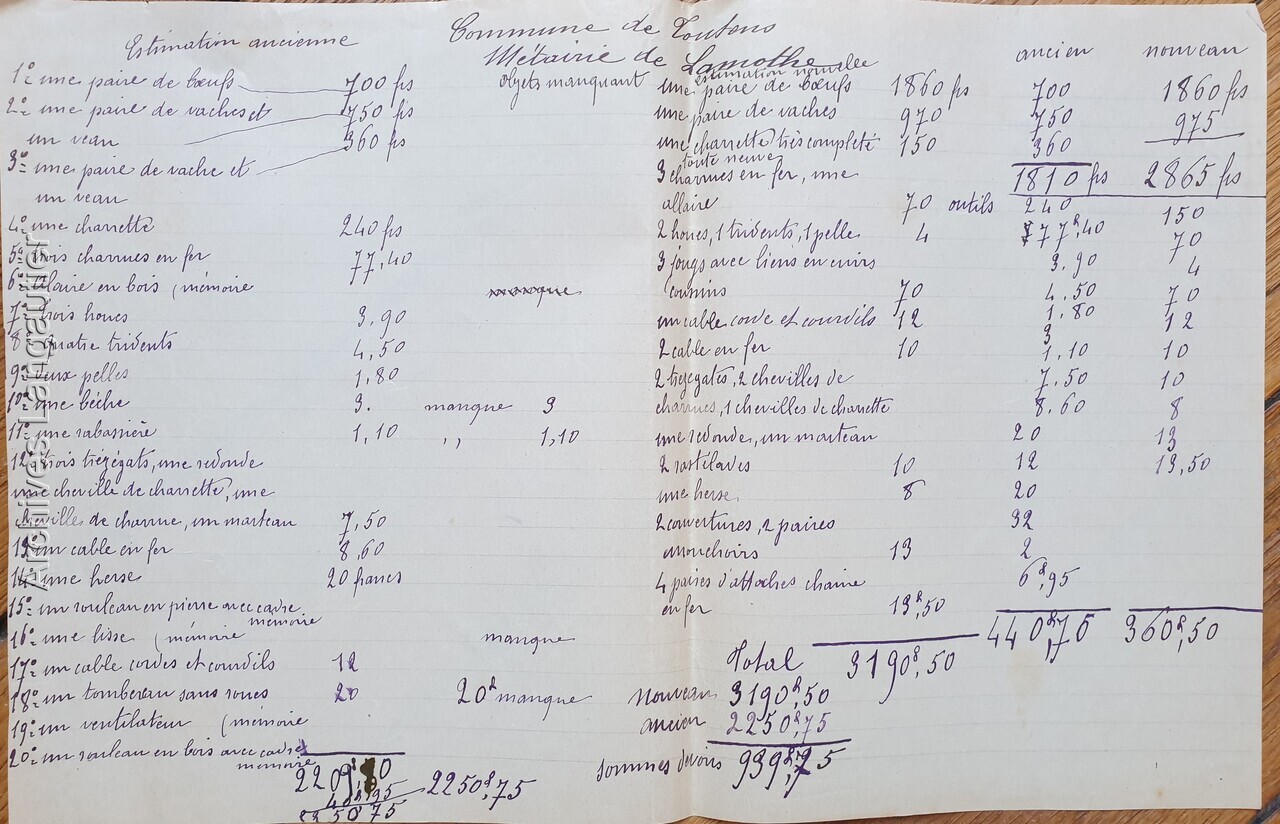 Commune de Toutens
Métairie de Lamothe
Estimation ancienne
1º une paire de bœufs 700 fs
2º une paire de vaches et 750 fs
un veau 360 fs
3º une paire de vache et
un veau
4º une charrette 240 fs
5º trois charrues en fer 77,40
6º alaire en bois (mémoire
7º trois houes 3.90
8 quatre tridents 4,50
9º deux pelles 1,80
10º une bêche 3.
11º une rabassière 1,10
12º trois trézégats, une redonde
une cheville de charrette, une
cheville de charrue, un marteau 7,50
13 un cable en fer 8,60
14º une herse 20 francs
15º un rouleau en pierre avec cadre
mémoire
16º une lisse (mémoire
17º un cable cordes et courdils 12
18º un tombereau sans roues 20
19º un ventilateur (mémoire
20º un rouleau en bois avec cadre
mémoire
2209,80
40,95
2250 75
2250f,75
objets manquant
manque
manque 3
,, 1,10
manque
20f manque
estimation nouvelle
une paire de bœufs 1860 fs
une paire de vaches 970
une charrette très complète 150
toute neuve
3 charrues en fer, une
allaire 70
2 houes, 1 tridents, 1 pelle 4
3 jougs avec liens en cuirs
cousins 70
un cable corde et courdils 12
2 cable en fer 10
2 trézégats, 2 chevilles de
charrues, 1 chevilles de charrette
une redonde, un marteau
2 rastilaves 10
une herse 8
2 couvertures, 2 paires
mouchoirs 13
4 paires d'attaches chaine
en fer 13f,50
Total 3190f,50
nouveau 3190f,50
ancien 2250f,75
sommes devons 939f,75
ancien
700
750
360
1810 fs
outils 240
77f,40
3.90
4.50
1.80
3
1,10
7.50
8.60
20
12
20
32
2
6f,95
440f,75
nouveau
1860 fs
975
2865 fs
150
70
4
70
12
10
10
8
13
13,50
360f,50
Archives Langautier